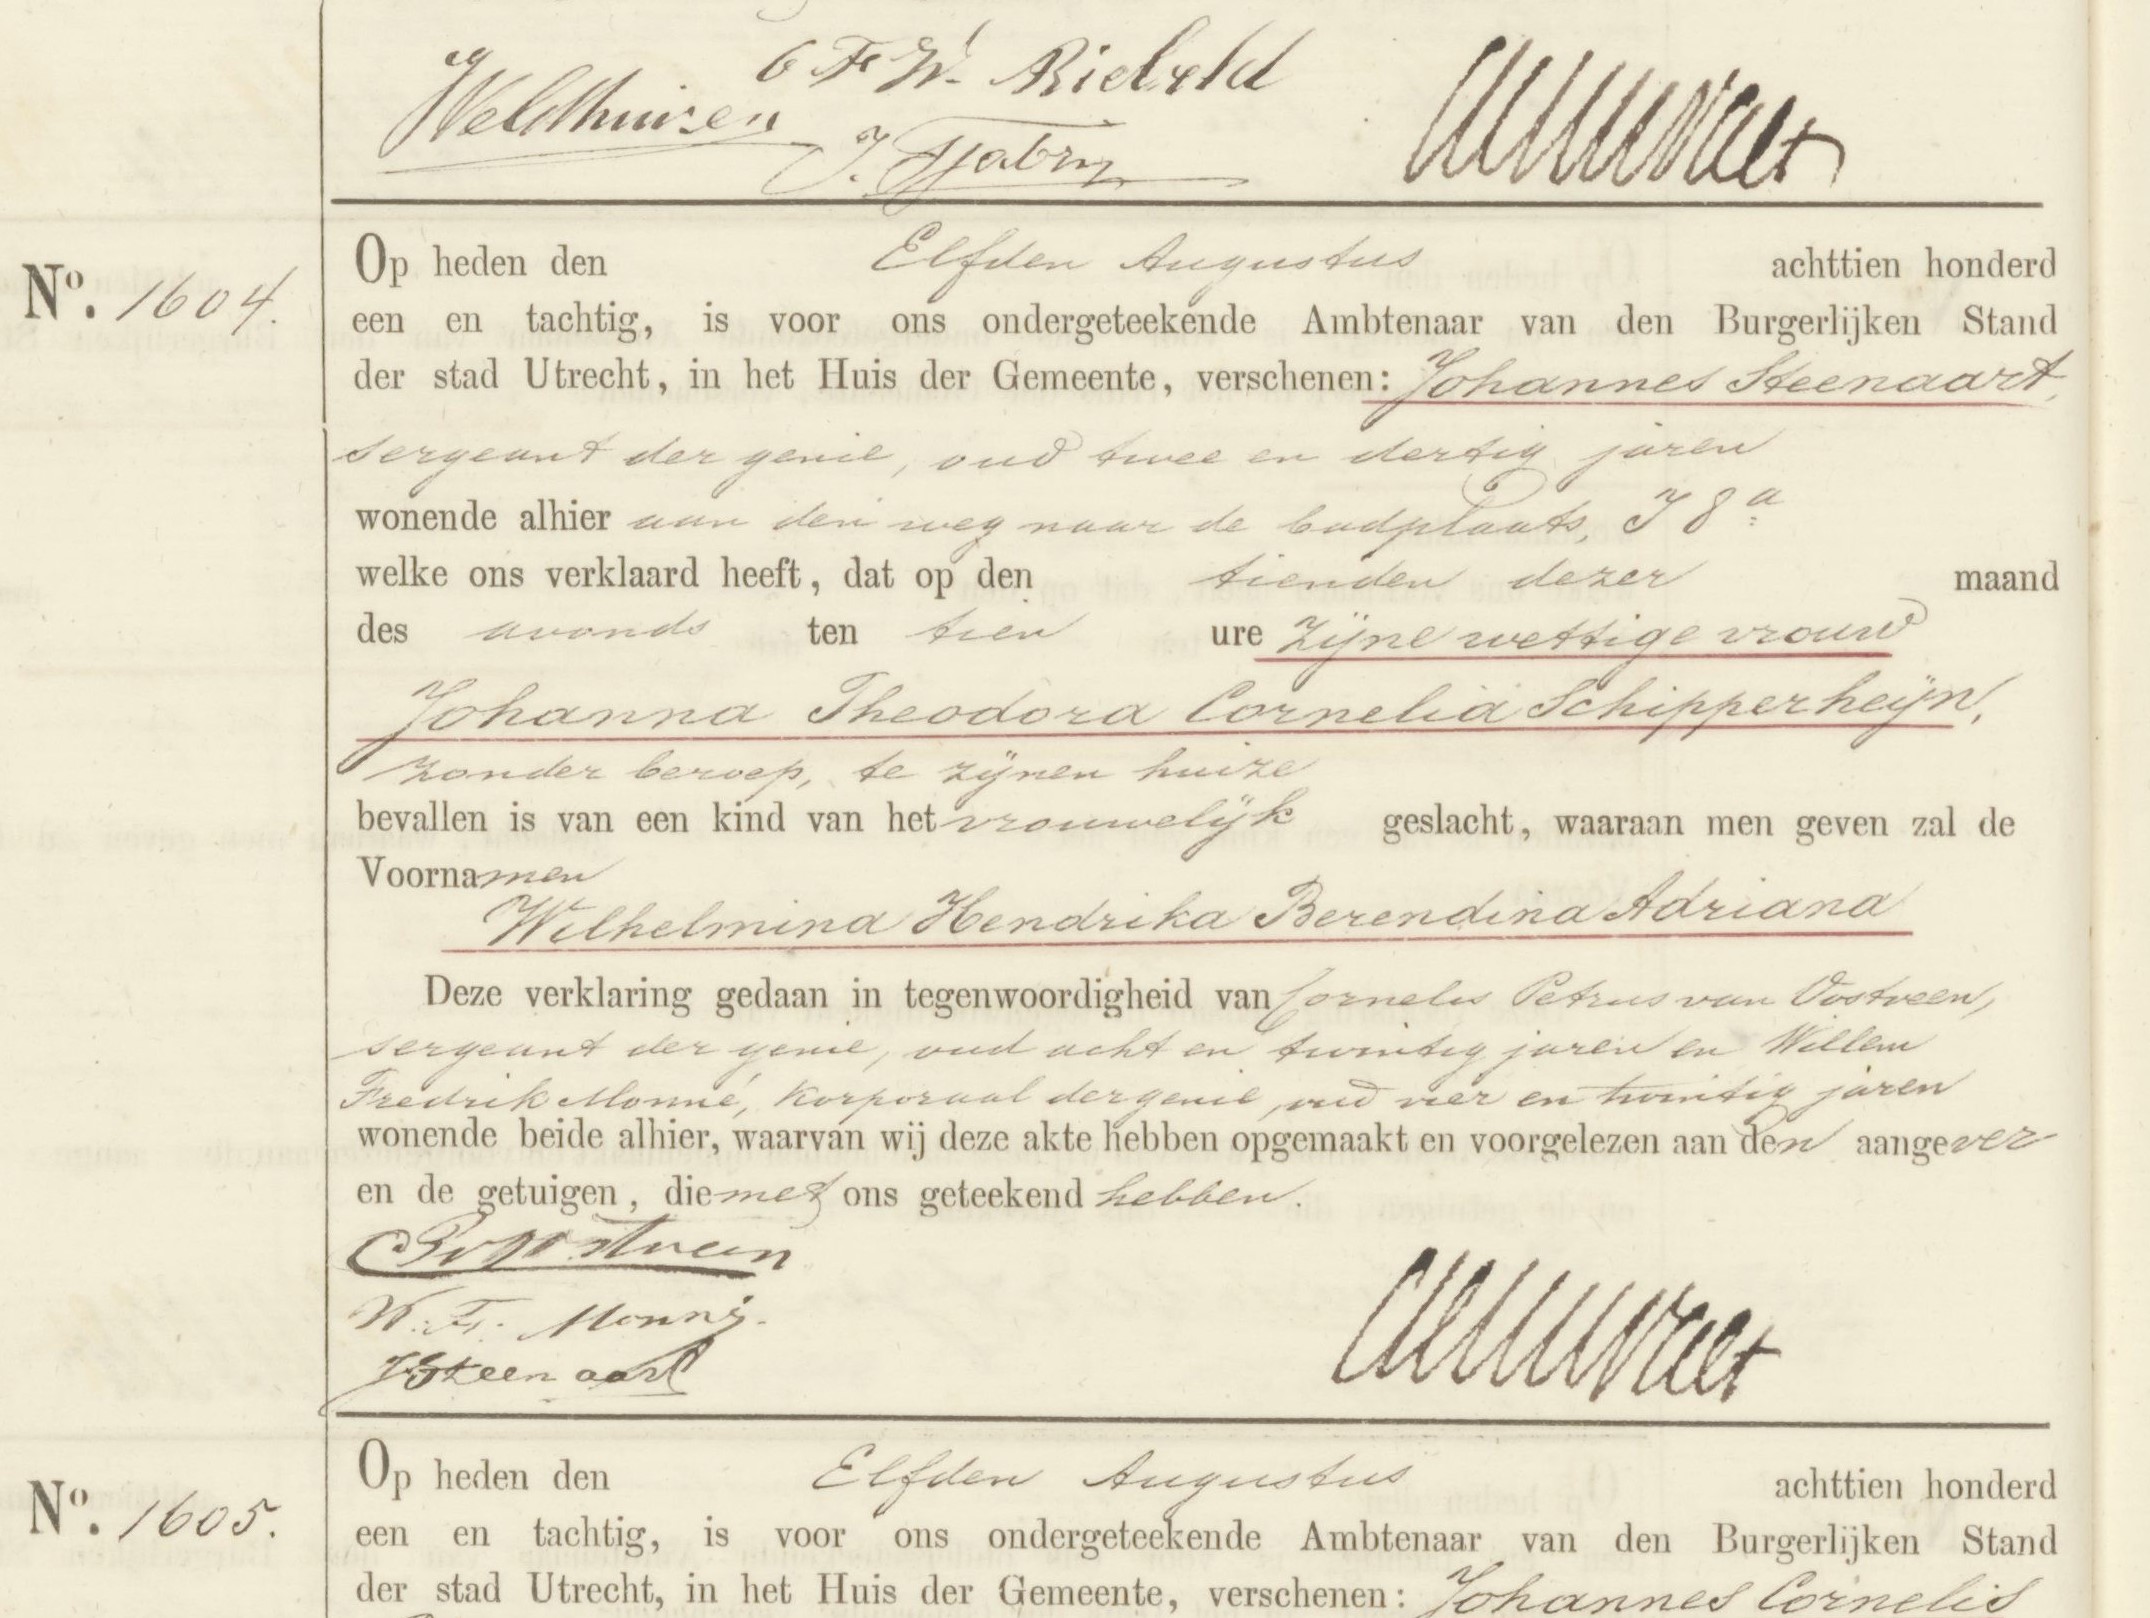 C F W. Rietveld
Veldhuisen
J. Fabry
No. 1604.
Op heden den Elfden Augustus achttien honderd
een en tachtig, is voor ons ondergeteekende Ambtenaar van den Burgerlijken Stand
der stad Utrecht, in het Huis der Gemeente, verschenen: Johannes Steenaart,
sergeant der genie, oud twee en dertig jaren
wonende alhier aan den weg naar de badplaats, I 8a
welke ons verklaard heeft, dat op den tienden dezer maand
des avonds ten tien ure zijne wettige vrouw
Johanna Theodora Cornelia Schipperheijn,
zonder beroep, te zijnen huize
bevallen is van een kind van het vrouwelijk geslacht, waaraan men geven zal de
Voornamen
Wilhelmina Hendrika Berendina Adriana
Deze verklaring gedaan in tegenwoordigheid van Cornelis Petrus van Oostveen,
sergeant der genie, oud acht en twintig jaren en Willem
Fredrik Monné, korporaal der genie, oud vier en twintig jaren
wonende beide alhier, waarvan wij deze akte hebben opgemaakt en voorgelezen aan den aangever
en de getuigen, die met ons geteekend hebben.
CPvOostveen
W. F. Monné.
JSteenaart
No. 1605.
Op heden den Elfden Augustus achttien honderd
een en tachtig, is voor ons ondergeteekende Ambtenaar van den Burgerlijken Stand
der stad Utrecht, in het Huis der Gemeente, verschenen: Johannes Cornelis